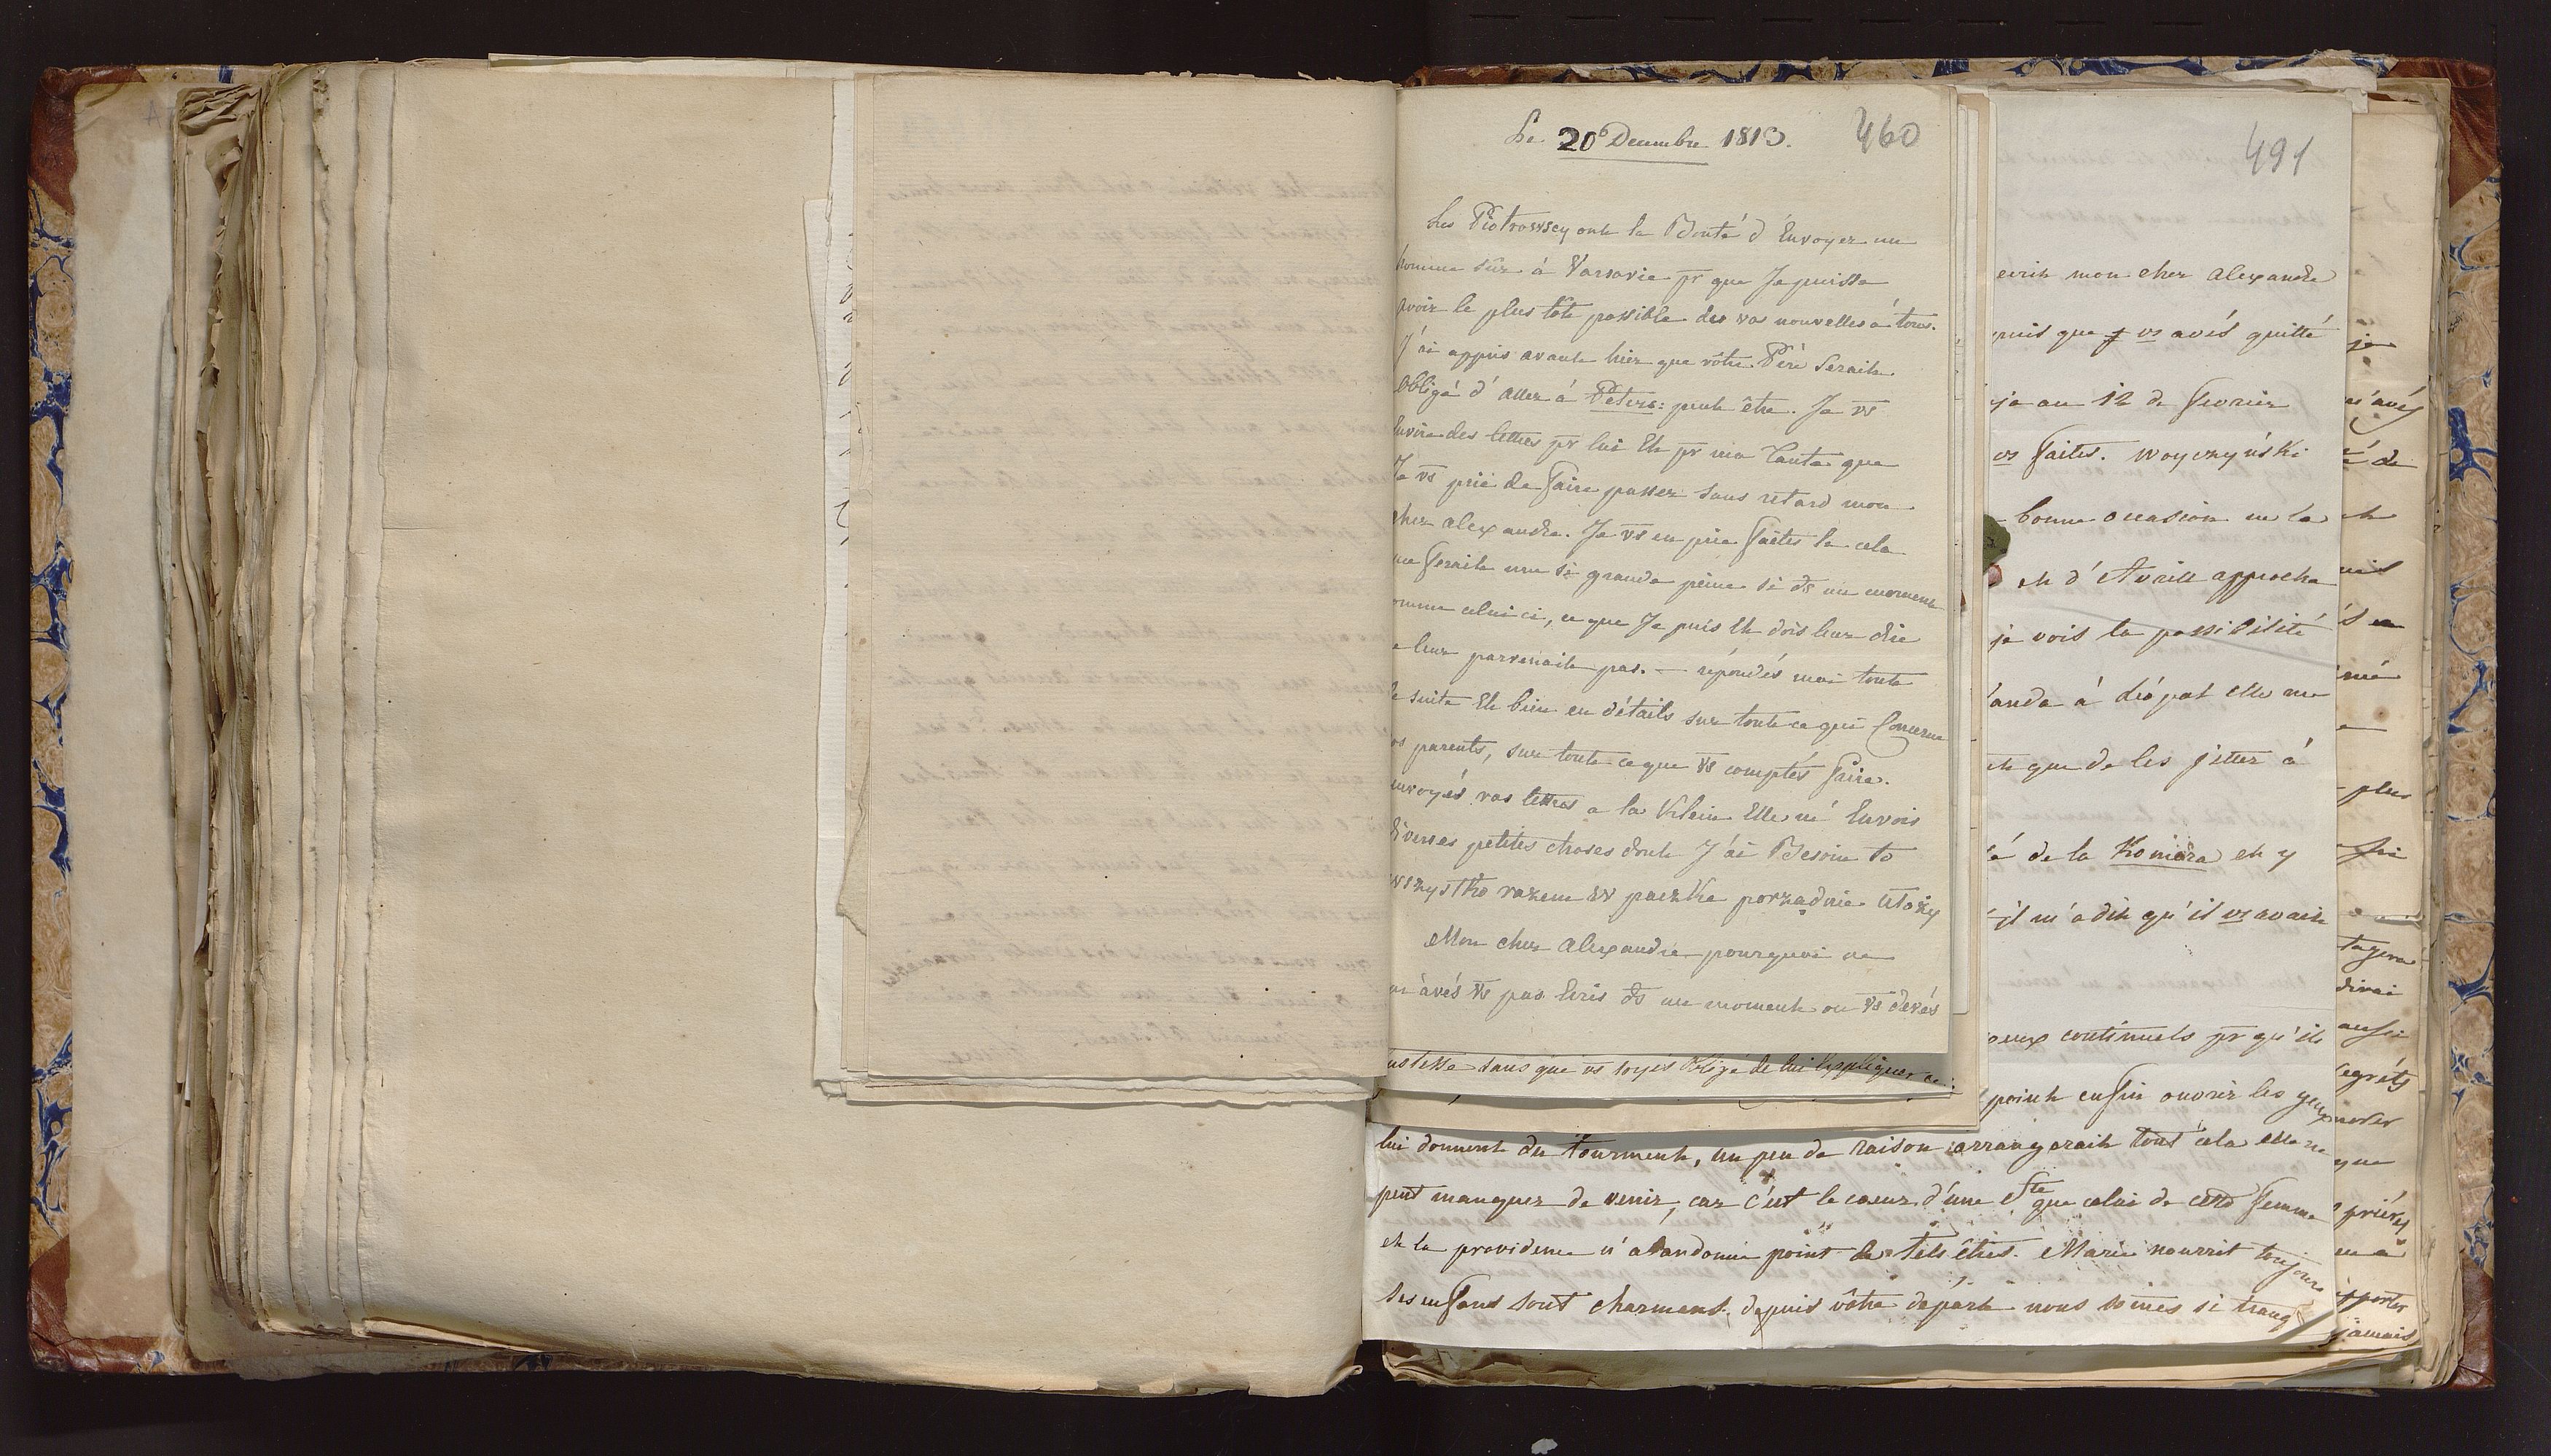 Le 20 Decembre 1813. 460
Les Piotrowsey ont la Bonté d'Envoyer un
homme sûr à Varsovie pr que Je puisse
avoir le plus tôt possible des vos nouvelles à tous.
J'ai appris avant hier que vôtre Père serait
Obligé d'aller à Peters: peut être. Je vs
Envoie des lettres pr lui Et pr ma Tante que
Je vs prie de faire passer sans retard mon
cher Alexandre. Je vs en prie faites le cela
me ferait une si grande peine si ds un moment
comme celui ci, ce que Je puis Et dois leur dire
ne leur parvenait pas. — répondés moi toute
de suite Et bien en détails sur tout ce qui Concerne
vos parents, sur tout ce que vs comptés faire.
envoyés vos lettres a la Klein Elle m'Envois
diverses petites choses dont J'ai Besoin to
wszystko razem w paczke porządnie Ułoży
Mon cher Alexandre pourquoi ne
m'avés vs pas Ecris ds un moment ou vs devés
sans que vs soyés Obligé de lui Expliquer
lui donnent du tourment, un peu de raison arrangerait tout cela elle ne
peut manquer de venir, car c'est le coeur d'une Ste que celui de cette femme
et la providence n'abandonne point de tels êtres. Marie nourrit toujours
Ses enfans sont charmans. depuis vôtre départ nous somes si tranq
491
ecrit mon cher Alexandre
puis que vs avés quitté
ja au 12 de fevrier
vs faites. Woyczyński
bonne occasion ne la
et d'Avrill approche
je vois la possibilité
à dépot elle ne
que de les jetter à
de la Komôra et y
il m'a dit qu'il vs avait
continuels pr qu'ils
point enfin ouvrir les yeux
je
m'avés
de
plus
divai
aussi
regréts
que
prières
en à
porter
jamais